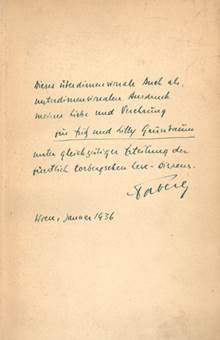 Dieses überdimensionale Buch als
unterdimensionalen Ausdruck
meiner Liebe und Verehrung
für Fritz und Lilly Grünbaum
unter gleichzeitiger Erteilung der
fürstlich torbergschen Lese-Dispens.
Torberg
Wien, Januar 1936